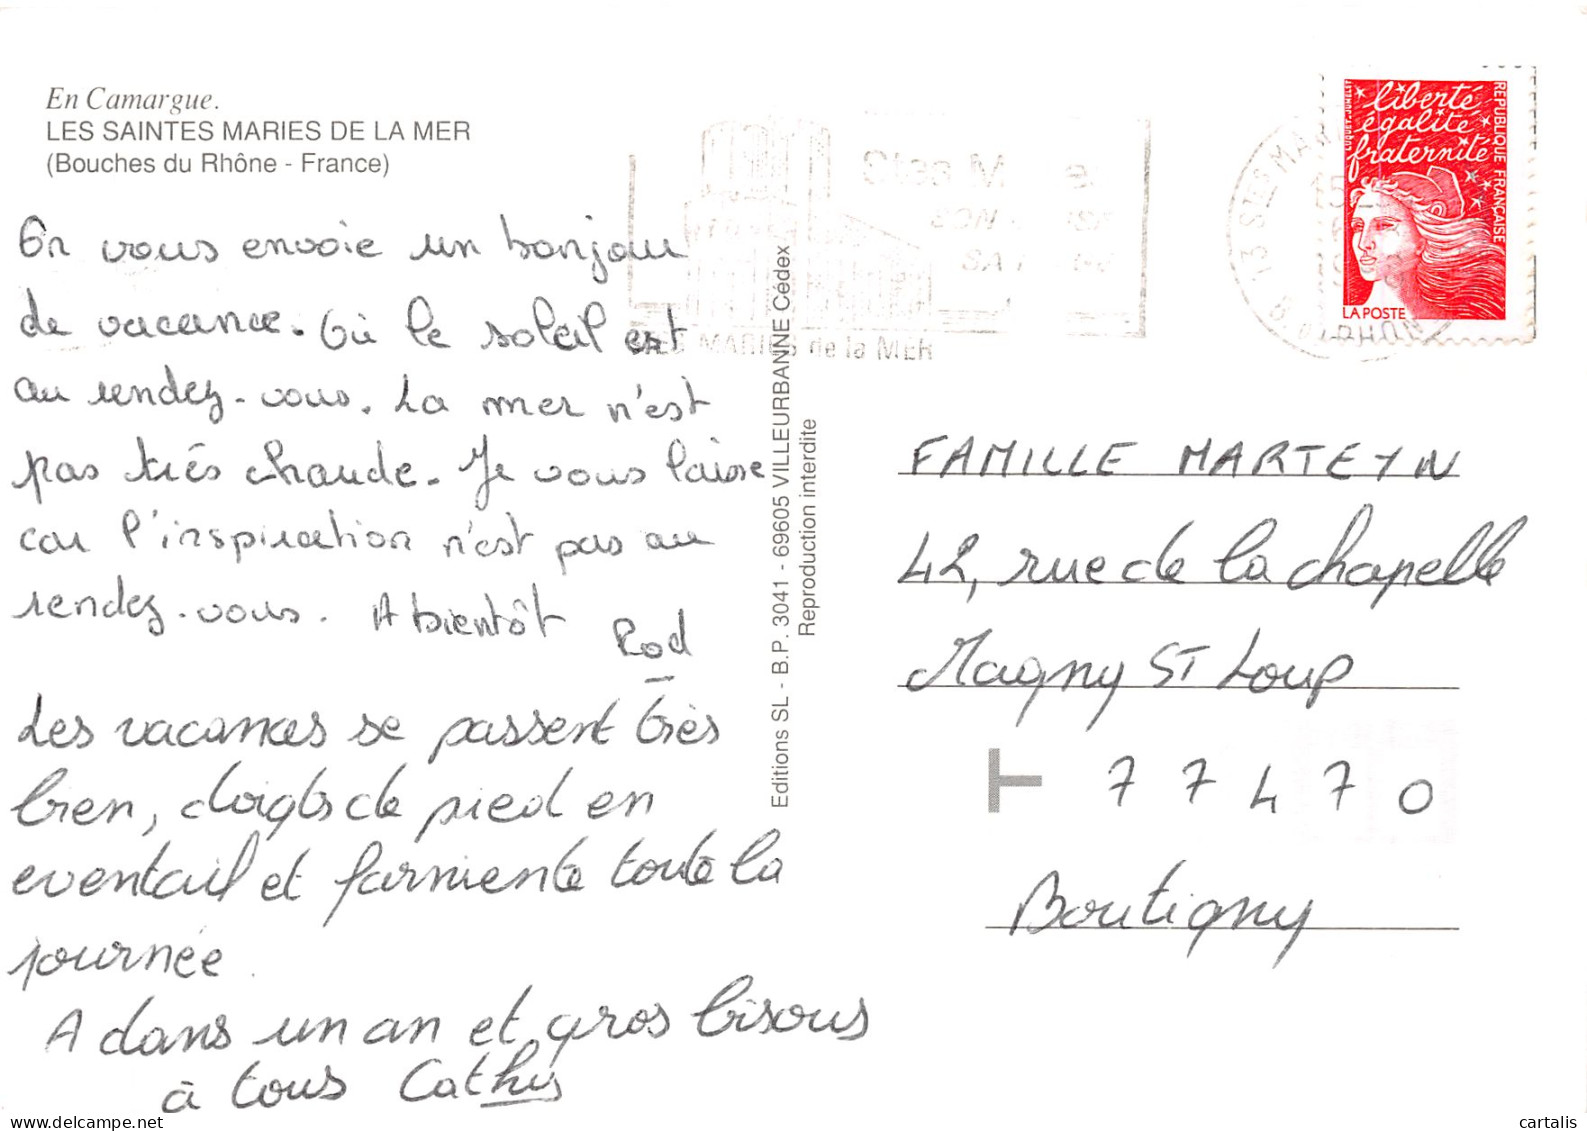 En Camargue.
LES SAINTES MARIES DE LA MER
(Bouches du Rhône - France)
On vous envoie un bonjour
de vacance. Où le soleil est
au rendez-vous. La mer n'est
pas très chaude. Je vous laisse
car l'inspiration n'est pas au
rendez-vous. A bientôt Rod
Les vacances se passent très
bien, doigts de pied en
eventail et farniente toute la
journée.
A dans un an et gros bisous
à tous Cathy
Editions SL - B.P. 3041 - 69605 VILLEURBANNE Cédex
Reproduction interdite
MARIES de la MER
13 STES MAR
B. DU RHONE
liberté
égalité
fraternité
RÉPUBLIQUE FRANÇAISE
LA POSTE
FAMILLE MARTEYN
42, rue de la chapelle
Magny ST Loup
T 77470
Boutigny
delcampe.net
cartalis